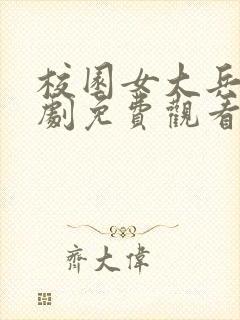 校園女大兵
劇免費觀看
齊大偉